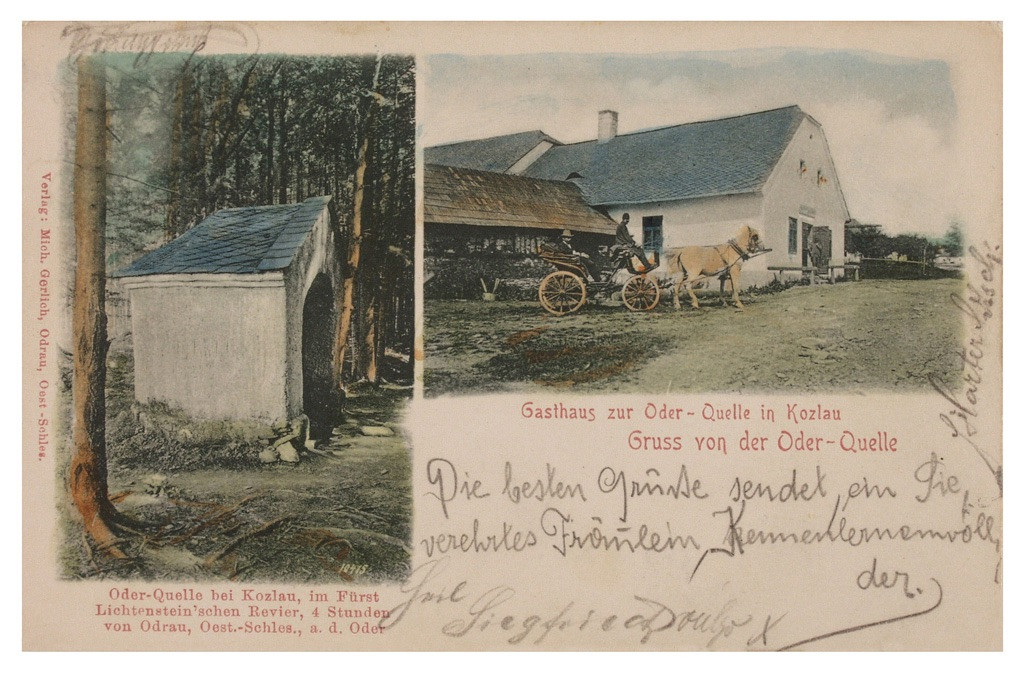 Verlag: Mich. Gerlich, Odrau, Oest-Schles.
10415
Oder-Quelle bei Kozlau, im Fürst
Lichtenstein'schen Revier, 4 Stunden
von Odrau, Oest.-Schles., a. d. Oder
Gasthaus zur Oder-Quelle in Kozlau
Gruss von der Oder-Quelle
Die besten Grüße sendet ein Sie,
verehrtes Fräulein, Kennenlernenwoll
der.
Siegfried